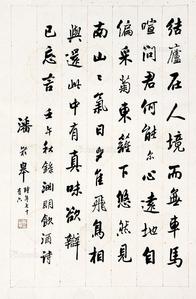 結廬在人境而無車馬
喧問君何能尔心遠地自
偏采菊東籬下悠然見
南山〻氣日夕佳飛鳥相
與還此中有真味欲辯
已忘言 壬午秋錄淵明飲酒詩
潘 皋 時年七十
有六